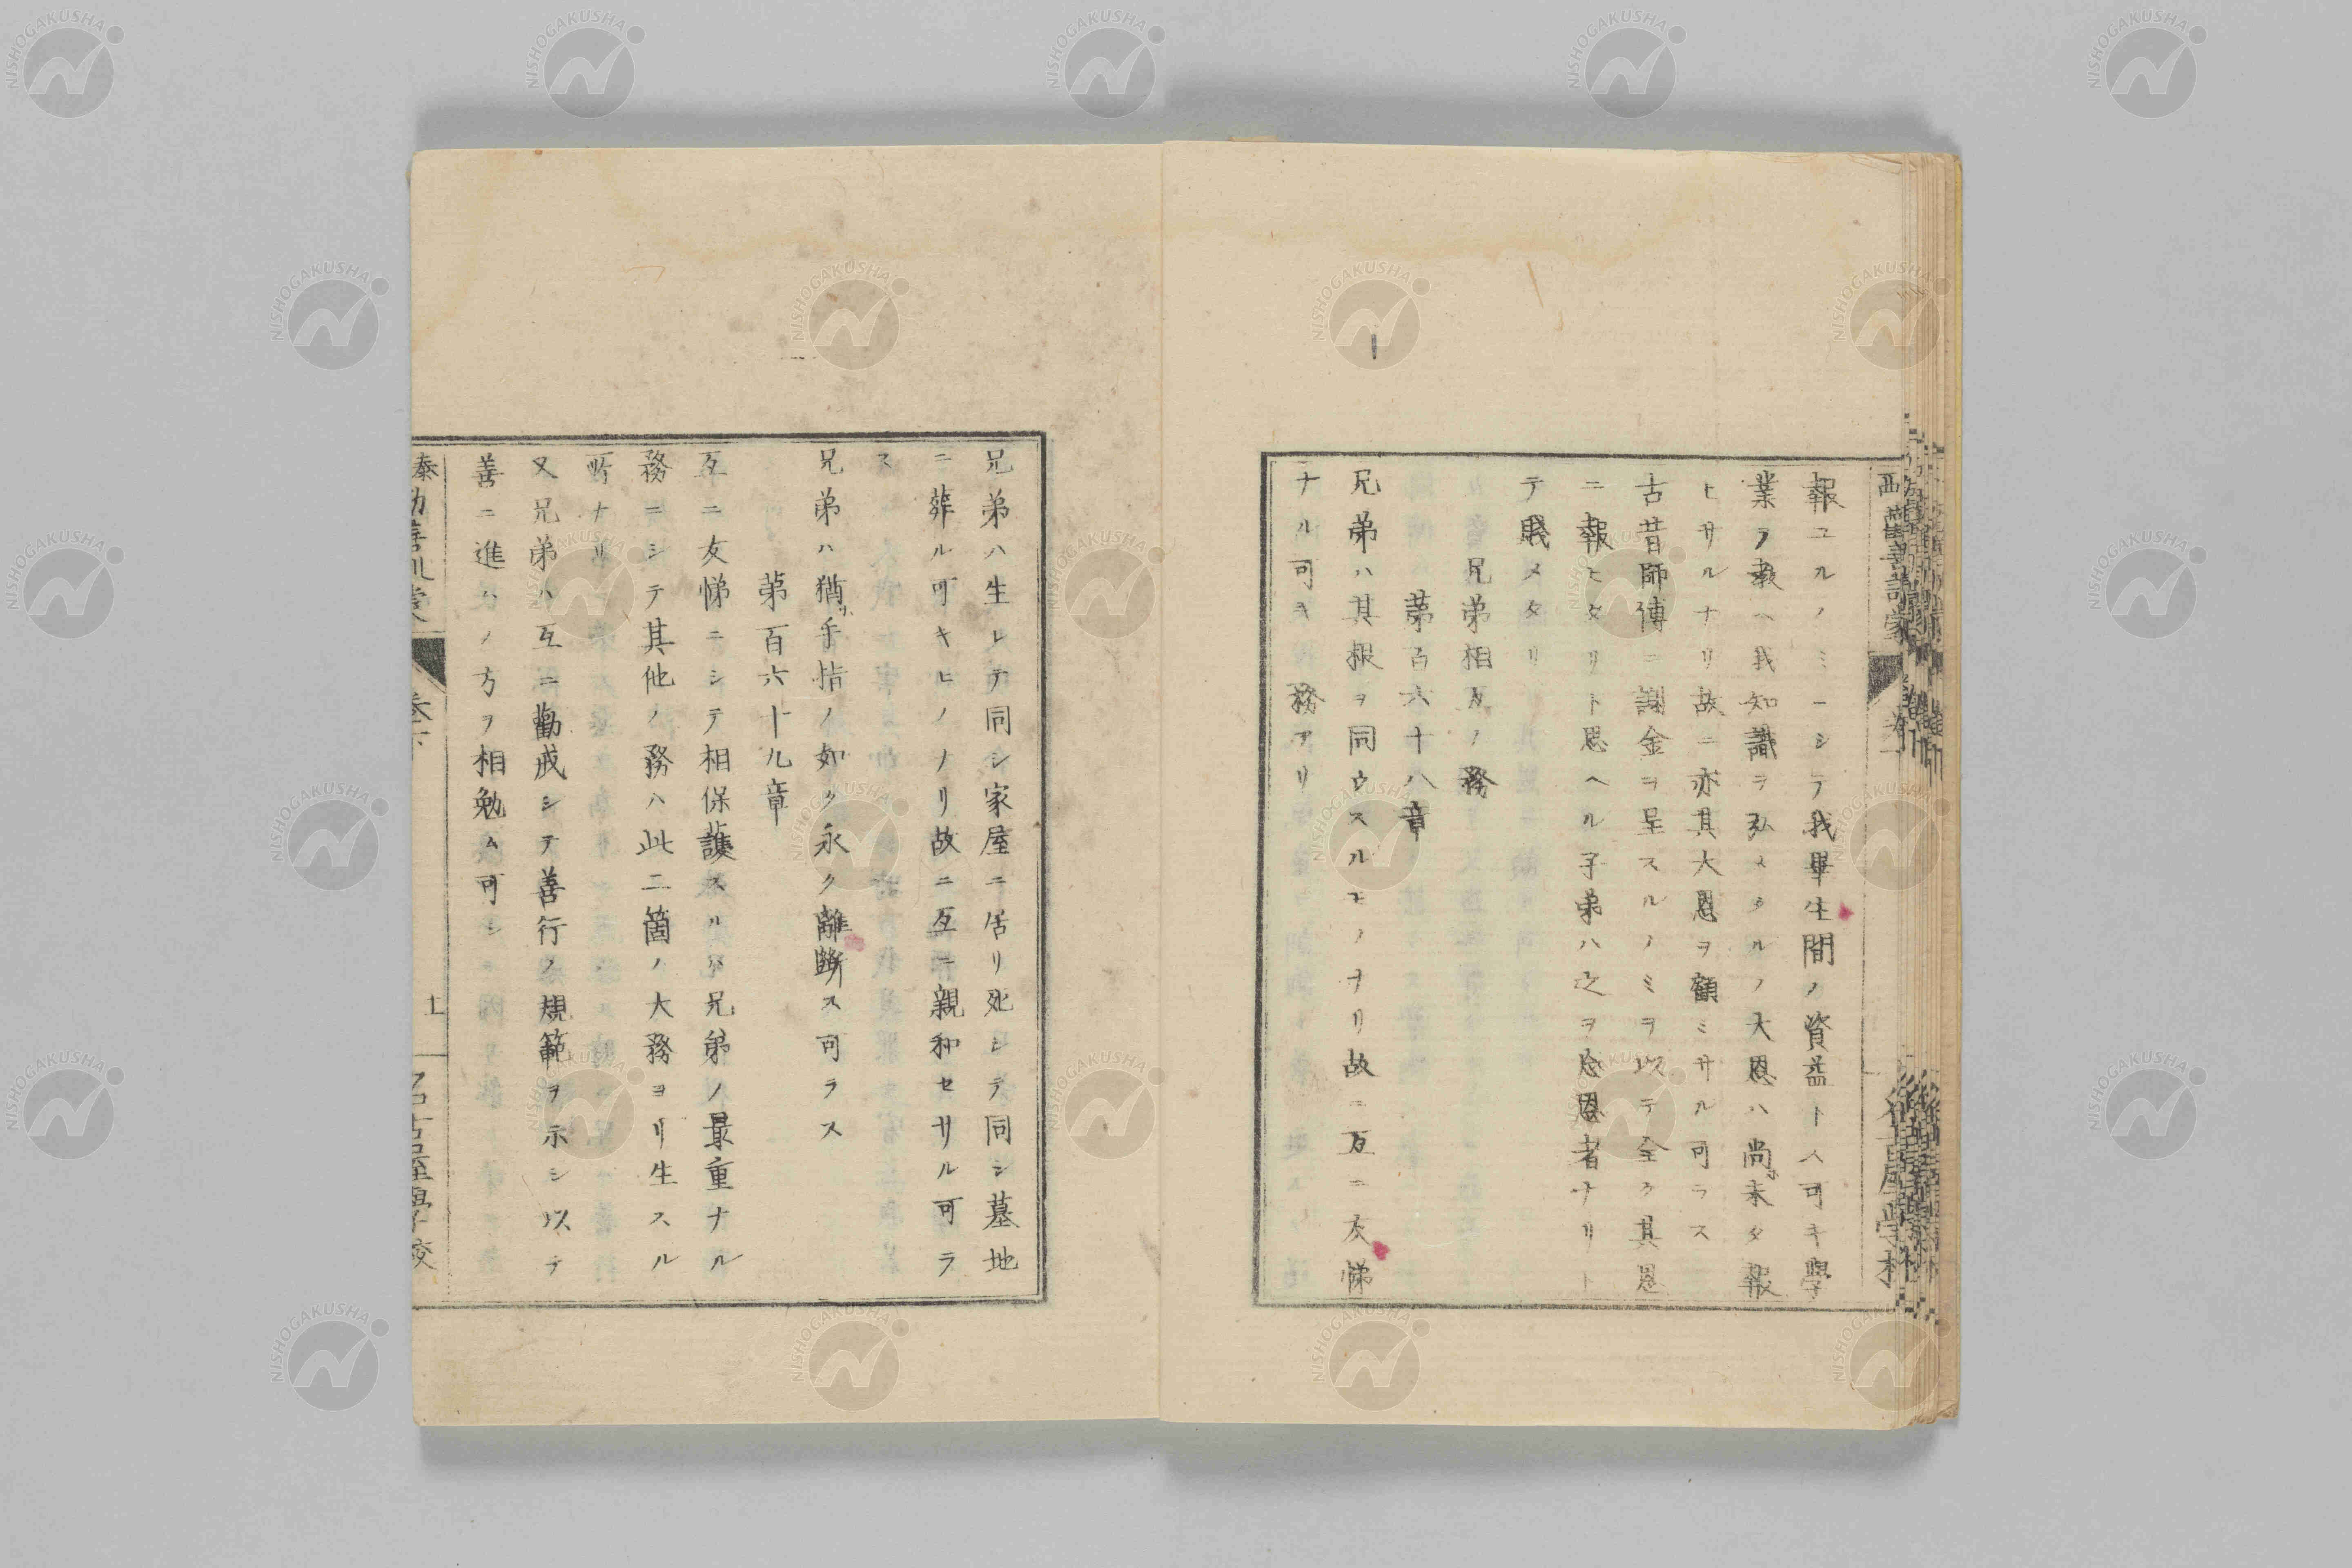 報ユルノミニシテ我畢生間ノ資益トス可キ學
業ヲ教ヘ我知識ヲ弘メタルノ大恩ハ尚未タ報
ヒサルナリ故ニ亦其大恩ヲ顧ミサル可ラス
古昔師傅ニ謝金ヲ呈スルノミヲ以テ全ク其恩
ニ報ヒタリト思ヘル子弟ハ之ヲ忘恩者ナリト
テ賤メタリ
兄弟相互ノ務
第百六十八章
兄弟ハ其根ヲ同ウスルモノナリ故ニ互ニ友悌
ナル可キ務アリ
兄弟ハ生レテ同シ家屋ニ居リ死シテ同シ墓地
ニ葬ル可キモノナリ故ニ互ニ親和セサル可ラ
ス
兄弟ハ猶手指ノ如ク永ク離斷ス可ラス
第百六十九章
互ニ友悌ニシテ相保護スルハ兄弟ノ最重ナル
務ニシテ其他ノ務ハ此二箇ノ大務ヨリ生スル
所ナリ
又兄弟ハ互ニ勸戒シテ善行ノ規範ヲ示シ以テ
善ニ進ムノ方ヲ相勉ム可シ
泰西勸善訓蒙
卷下
名古屋學校
NISHOGAKUSHA